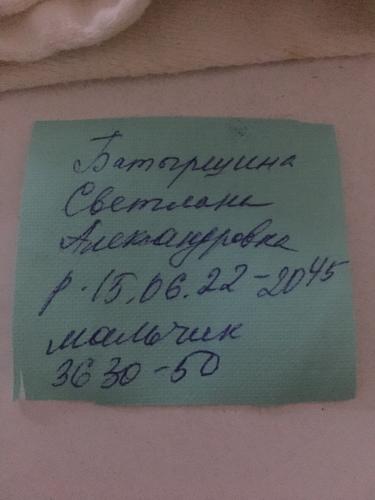 Батырщина
Светлана
Александровна
р. 15.06.22-20⁴⁵
мальчик
3630-50